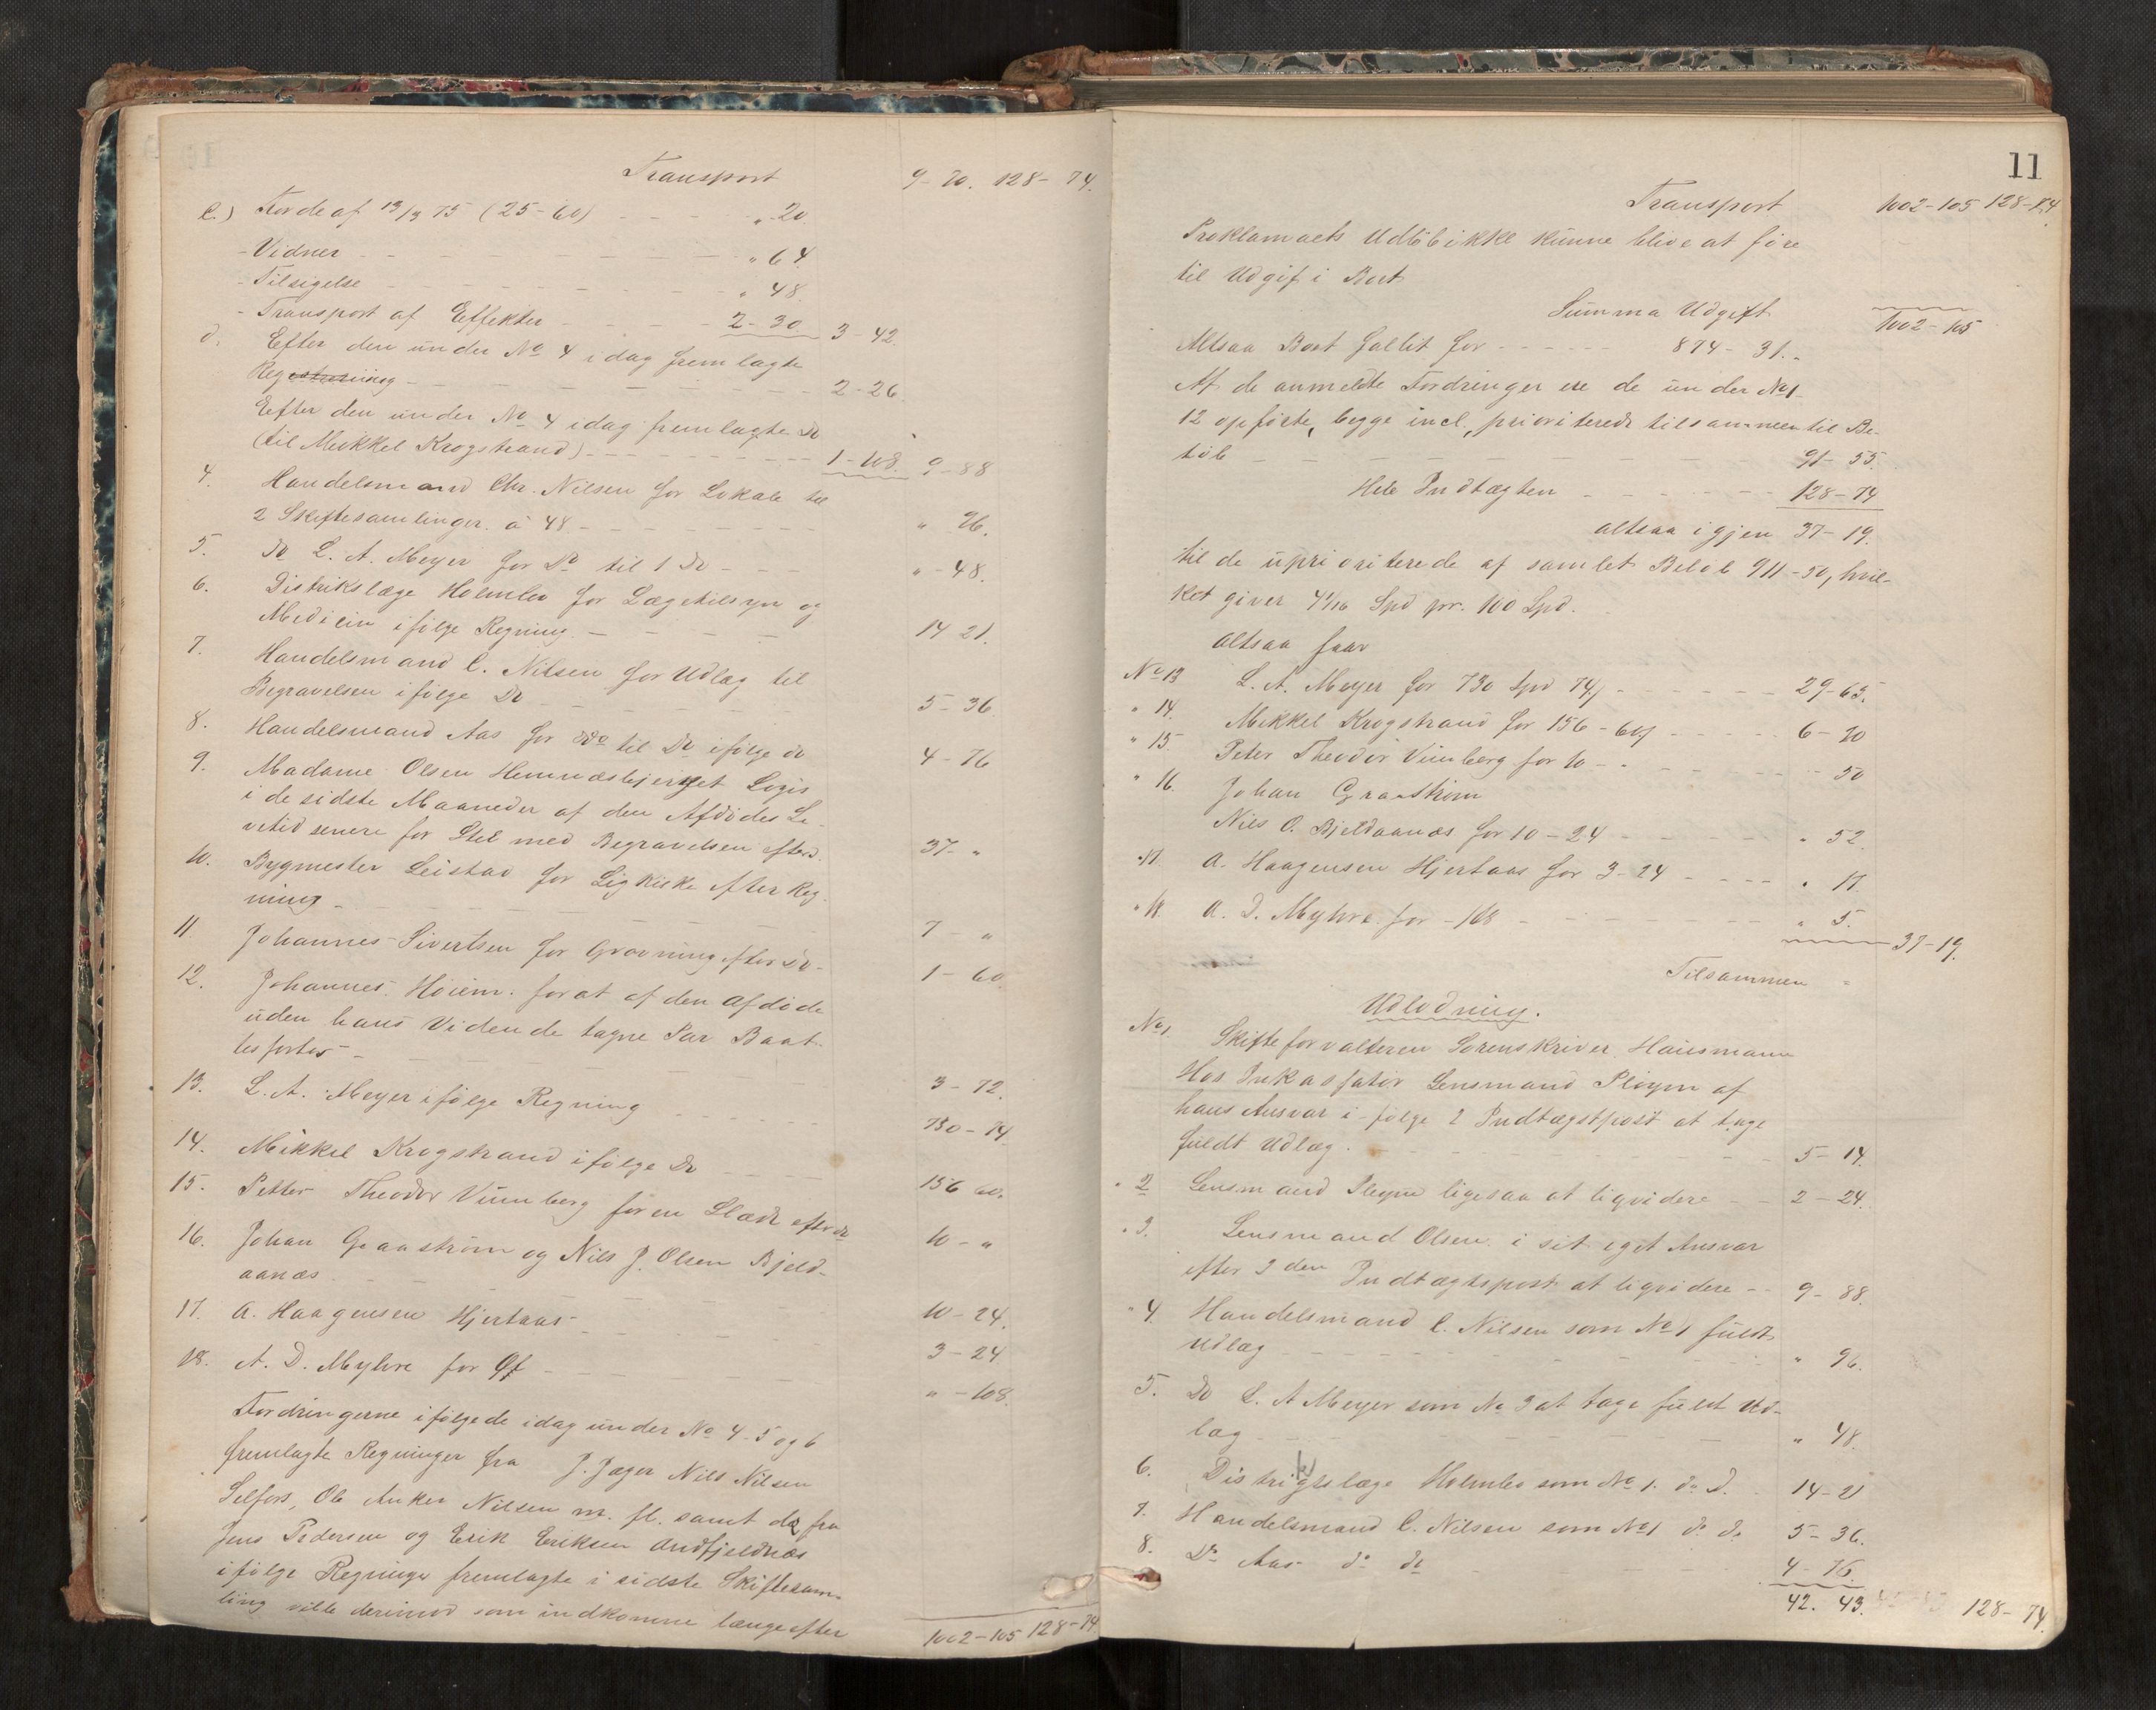 Transport 9-70. 128-74.
c.) Forde af 13/3 75 (25-60) - - - - " 20
- Vidner - - - - - - - " 64
- Tilsigelse - - - - - - - " 48.
- Transport af Effekter - - - - 2-30 3-42.
d. Efter den under No 4 idag fremlagte
Regestrering - - - - - - 2-26.
Eefter den under No 4 idag fremlagte Do
(til Mikkel Krogstrand) - - - - 1-108. 9-88
4. Handelsmand Chr. Nilsen for Lokale til
2 Skiftesamlinger. á 48 - - - - " 96.
5. Do L. A. Meyer for Do til 1 Do - - - " -48.
6. Distrikslæge Holmboe for Lægetilsyn og
Medicin ifølge Regning - - - - 14 21.
7. Handelsmand C. Nilsen for Udlæg til
Begravelsen ifølge Do - - - - 5-36
8. Handelsmand Aas for Do til Do ifølge do 4-76
9. Madame Olsen Hemnæsbjerget Logis
i de sidste Maaneder af den Afdødes Le-
vetid senere for Stel med Begravelsen efter. 37- "
10. Bygmester Leistad for Ligkiste efter Reg-
ning - - - - - - 7 - "
11 Johannes Sivertsen for Gravning efter Do - 1-60.
12. Johannes. Høiem. for at af den afdøde
uden hans Vidende tagne Par Baat-
tesfortøi - - - - - 3-72.
13. L. A. Meyer ifølge Regning - - - 730-74
14. Mikkel Krogstrand ifølge Do - - - 156 60.
15. Petter Theodor Vinnberg for en Slæde efter do 10 - "
16. Johan Graastrøm og Nils J. Olsen Bjeld-
aanæs - - - - - 10-24.
17. A. Haagensen Hjertaas - - - - 3-24
18. A. D. Myhre for Øl - - - - " -108.
Fordringerne ifølge de idag under No 4-5 og 6
fremlagte Regninger fra J. Jæger Nils Nilsen
Selfors, Ole Anker Nilsen m. fl. samt de fra
Jens Pedersen og Erik Eriksen Andfjeldnæs
ifølge Regninger fremlagte i sidste Skiftesam-
ling ville derimod som indkomne længe efter
1002-105 128-74
11
Transport 1002-105 128-74
Proklamaets Udløb ikke kunne blive at føre
til Udgift i Boet
Summa Udgift 1002-105
Altsaa Boet fallit for - - - - 874-31. "
Af de anmeldte Fordringer ere de under No 1-
12 opførte, begge incl., prioriterede tilsammen til Be-
løb - - - - - - 91-55.
Hele Indtægten - - - - 128-74
altsaa igjen 37-19.
til de uprioriterede af samlet Beløb 911-50, hvil-
ket giver 4 1/16 Spd pr. 100 Spd.
altsaa faar
No 13 L. A. Meyer for 730 Spd 74 - - - - 29-65.
" 14. Mikkel Krogstrand for 156-60 - - - - 6-70
" 15 Peter Theodor Vinnberg for 10 - " - - - - 50
" 16. Johan Graastrøm
Nils O. Bjeldaanæs for 10-24 - - - - " 52.
" 17. A. Haagensen Hjertaas for 3-24 - - - - " 17.
" 18. A. D. Myhre for -108 - - - - " 5. 37-19.
Tilsammen =
Udlodning.
No 1 Skifteforvalteren Sorenskriver Hausmann
Hos Inkassator Lensmand Pløym af
hans Ansvar i-følge 2 Indtægstpost at tage
fuldt Udlæg. - - - - - 5-14.
" 2 Lensmand Pløym ligesaa at liqvidere - - 2-24.
" 3. Lensmand Olsen i sit eget Ansvar
efter 3den Indtægtspost at liqvidere - - 9-88.
" 4. Handelsmand C. Nilsen som No 1 fuldt
Udlæg - - - - - " 96.
5. Do L. A Meyer som No 3 at tage fuldt Ud-
læg - - - - - " 48.
6. Distrigtslæge Holmboe som No 1. do D. 14-21
7. Handelsmand C. Nilsen som No 1 do do 5-36.
8. Do Aas do do - - - - 4-76.
42. 43. 128-74.